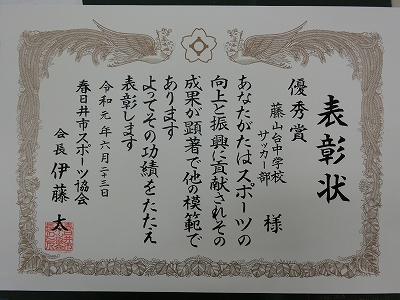 表彰状
優秀賞
藤山台中学校
サッカー部 様
あなたがたはスポーツの
向上と振興に貢献されその
成果が顕著で他の模範で
あります
よってその功績をたたえ
表彰します
令和元年六月二十三日
春日井市スポーツ協会
会長 伊藤 太